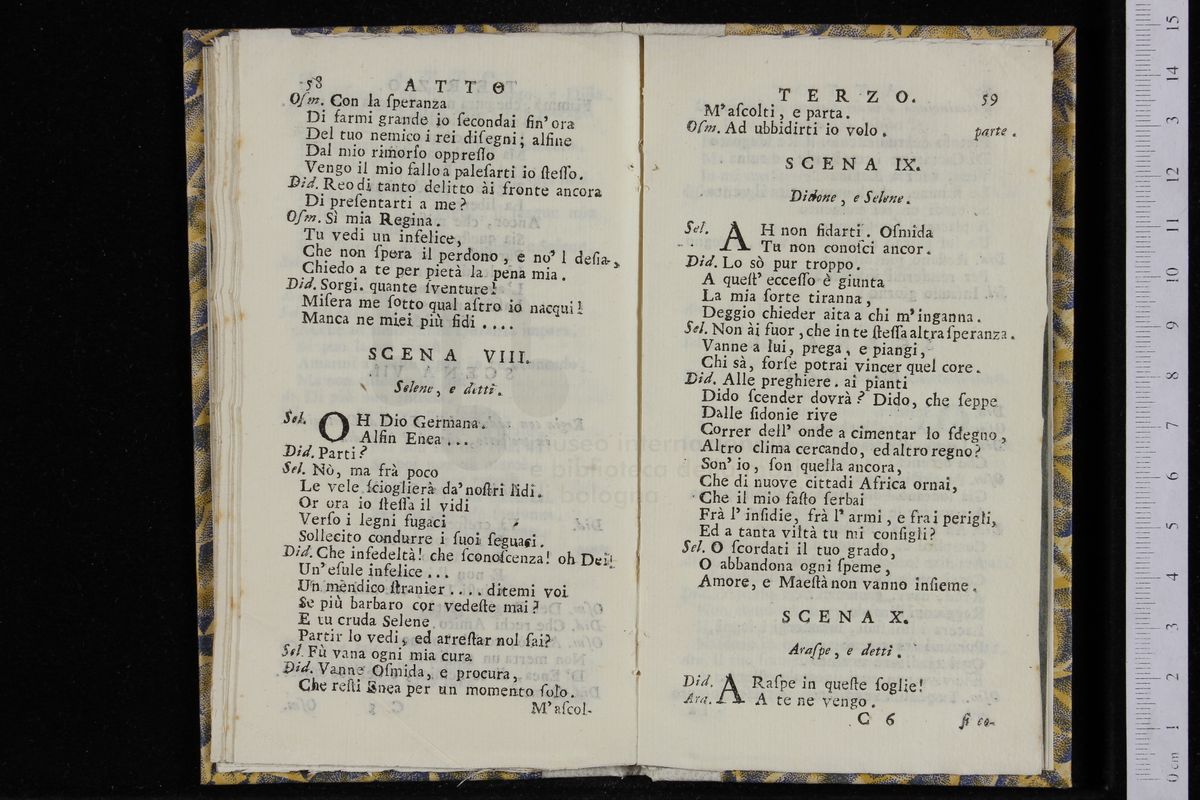 58 ATTO
Oſm. Con la ſperanza
Di farmi grande io ſecondai fin' ora
Del tuo nemico i rei diſegni; alfine
Dal mio rimorſo oppreſſo
Vengo il mio fallo a paleſarti io ſteſſo.
Did. Reo di tanto delitto ài fronte ancora
Di preſentarti a me?
Oſm. Sì mia Regina.
Tu vedi un infelice,
Che non ſpera il perdono, e no' l deſia,
Chiedo a te per pietà la pena mia.
Did. Sorgi. quante ſventure!
Miſera me ſotto qual aſtro io nacqui!
Manca ne miei più fidi ....
SCENA VIII.
Selene, e detti.
Sel. OH Dio Germana.
Alfin Enea ...
Did. Parti?
Sel. Nò, ma frà poco
Le vele ſcioglierà da' noſtri lidi.
Or ora io ſteſſa il vidi
Verſo i legni fugaci
Sollecito condurre i ſuoi ſeguaci.
Did. Che infedeltà! che ſconoſcenza! oh Dei!
Un' eſule infelice ...
Un mendico ſtranier .... ditemi voi
Se più barbaro cor vedeſte mai?
E tu cruda Selene
Partir lo vedi, ed arreſtar nol ſai?
Sel. Fù vana ogni mia cura
Did. Vanne Oſmida, e procura,
Che reſti Enea per un momento ſolo.
M' aſcol-
TERZO. 59
M' aſcolti, e parta.
Oſm. Ad ubbidirti io volo. parte.
SCENA IX.
Didone, e Selene.
Sel. AH non fidarti. Oſmida
Tu non conoſci ancor.
Did. Lo sò pur troppo.
A queſt' ecceſſo è giunta
La mia ſorte tiranna,
Deggio chieder aita a chi m' inganna.
Sel. Non ài fuor, che in te ſteſſa altra ſperanza.
Vanne a lui, prega, e piangi,
Chi sà, forſe potrai vincer quel core.
Did. Alle preghiere. ai pianti
Dido ſcender dovrà? Dido, che ſeppe
Dalle ſidonie rive
Correr dell' onde a cimentar lo ſdegno,
Altro clima cercando, ed altro regno?
Son' io, ſon quella ancora,
Che di nuove cittadi Africa ornai,
Che il mio faſto ſerbai
Frà l' inſidie, frà l' armi, e fra i perigli,
Ed a tanta viltà tu mi conſigli?
Sel. O ſcordati il tuo grado,
O abbandona ogni ſpeme,
Amore, e Maeſtà non vanno inſieme.
SCENA X.
Araſpe, e detti.
Did. ARaſpe in queſte ſoglie!
Ara. A te ne vengo.
C 6 ſi co-
museo internazionale
e biblioteca della
di bologna
0 cm 1 2 3 4 5 6 7 8 9 10 11 12 13 14 15